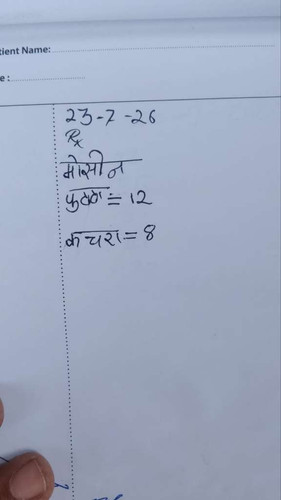 tient Name:
e :
23-7-26
Rx
मोसीन
फुटवे = 12
कचरा = 8